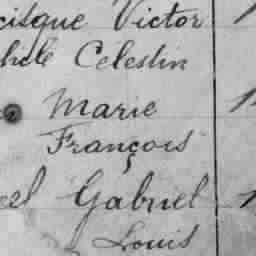 cisque Victor
Celestin
Marie
François
Gabriel
Louis